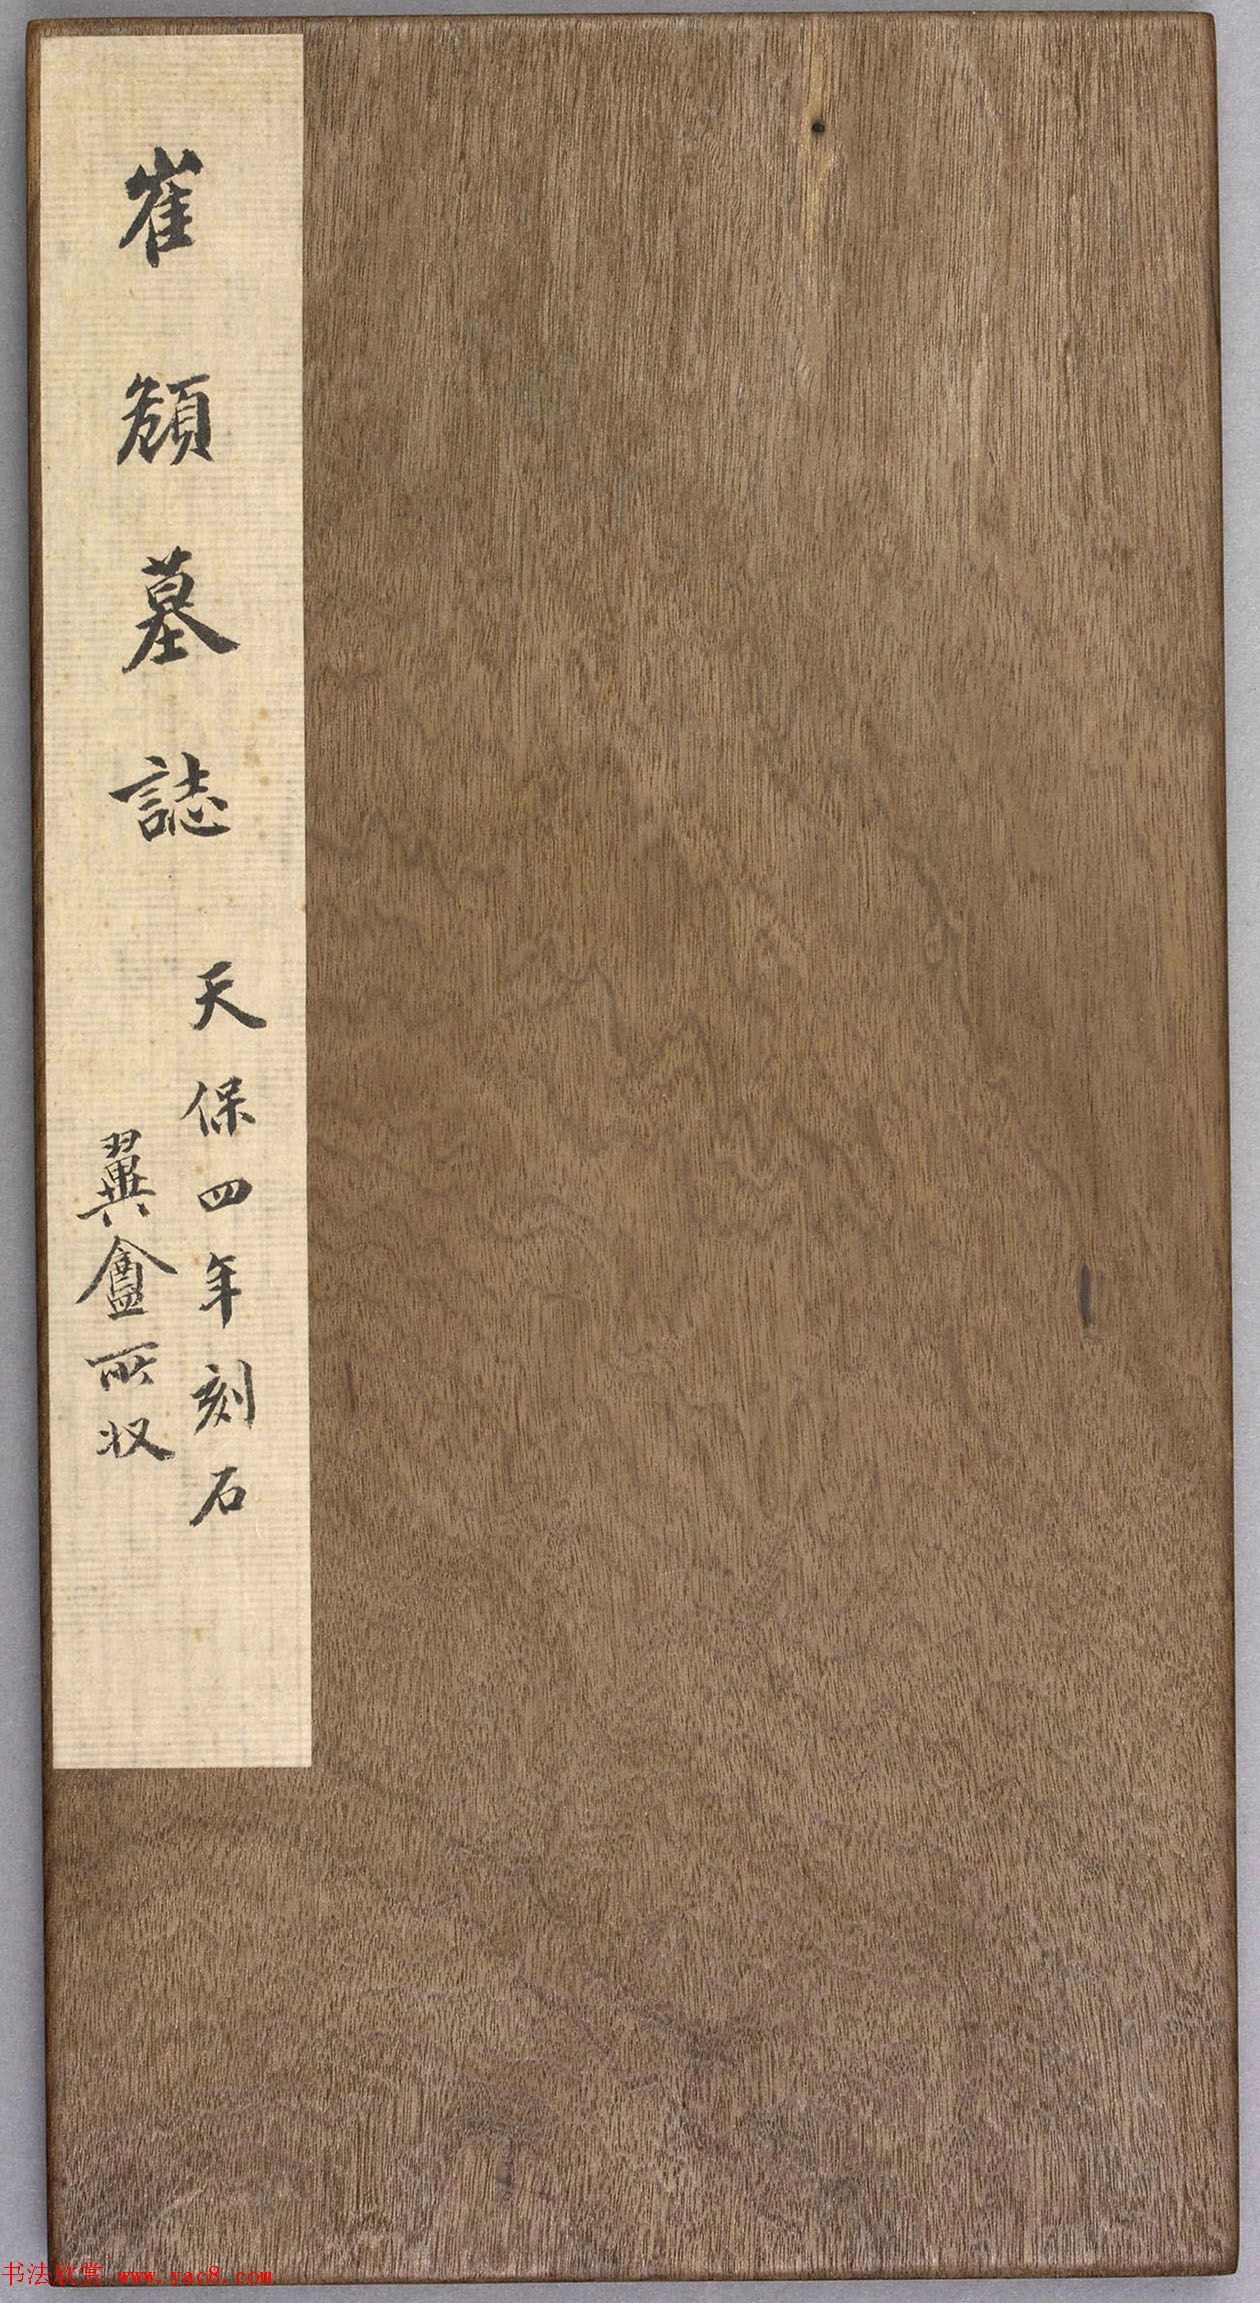 崔頠墓誌
天保四年刻石
翼盦所收
书法欣赏 www.yac8.com